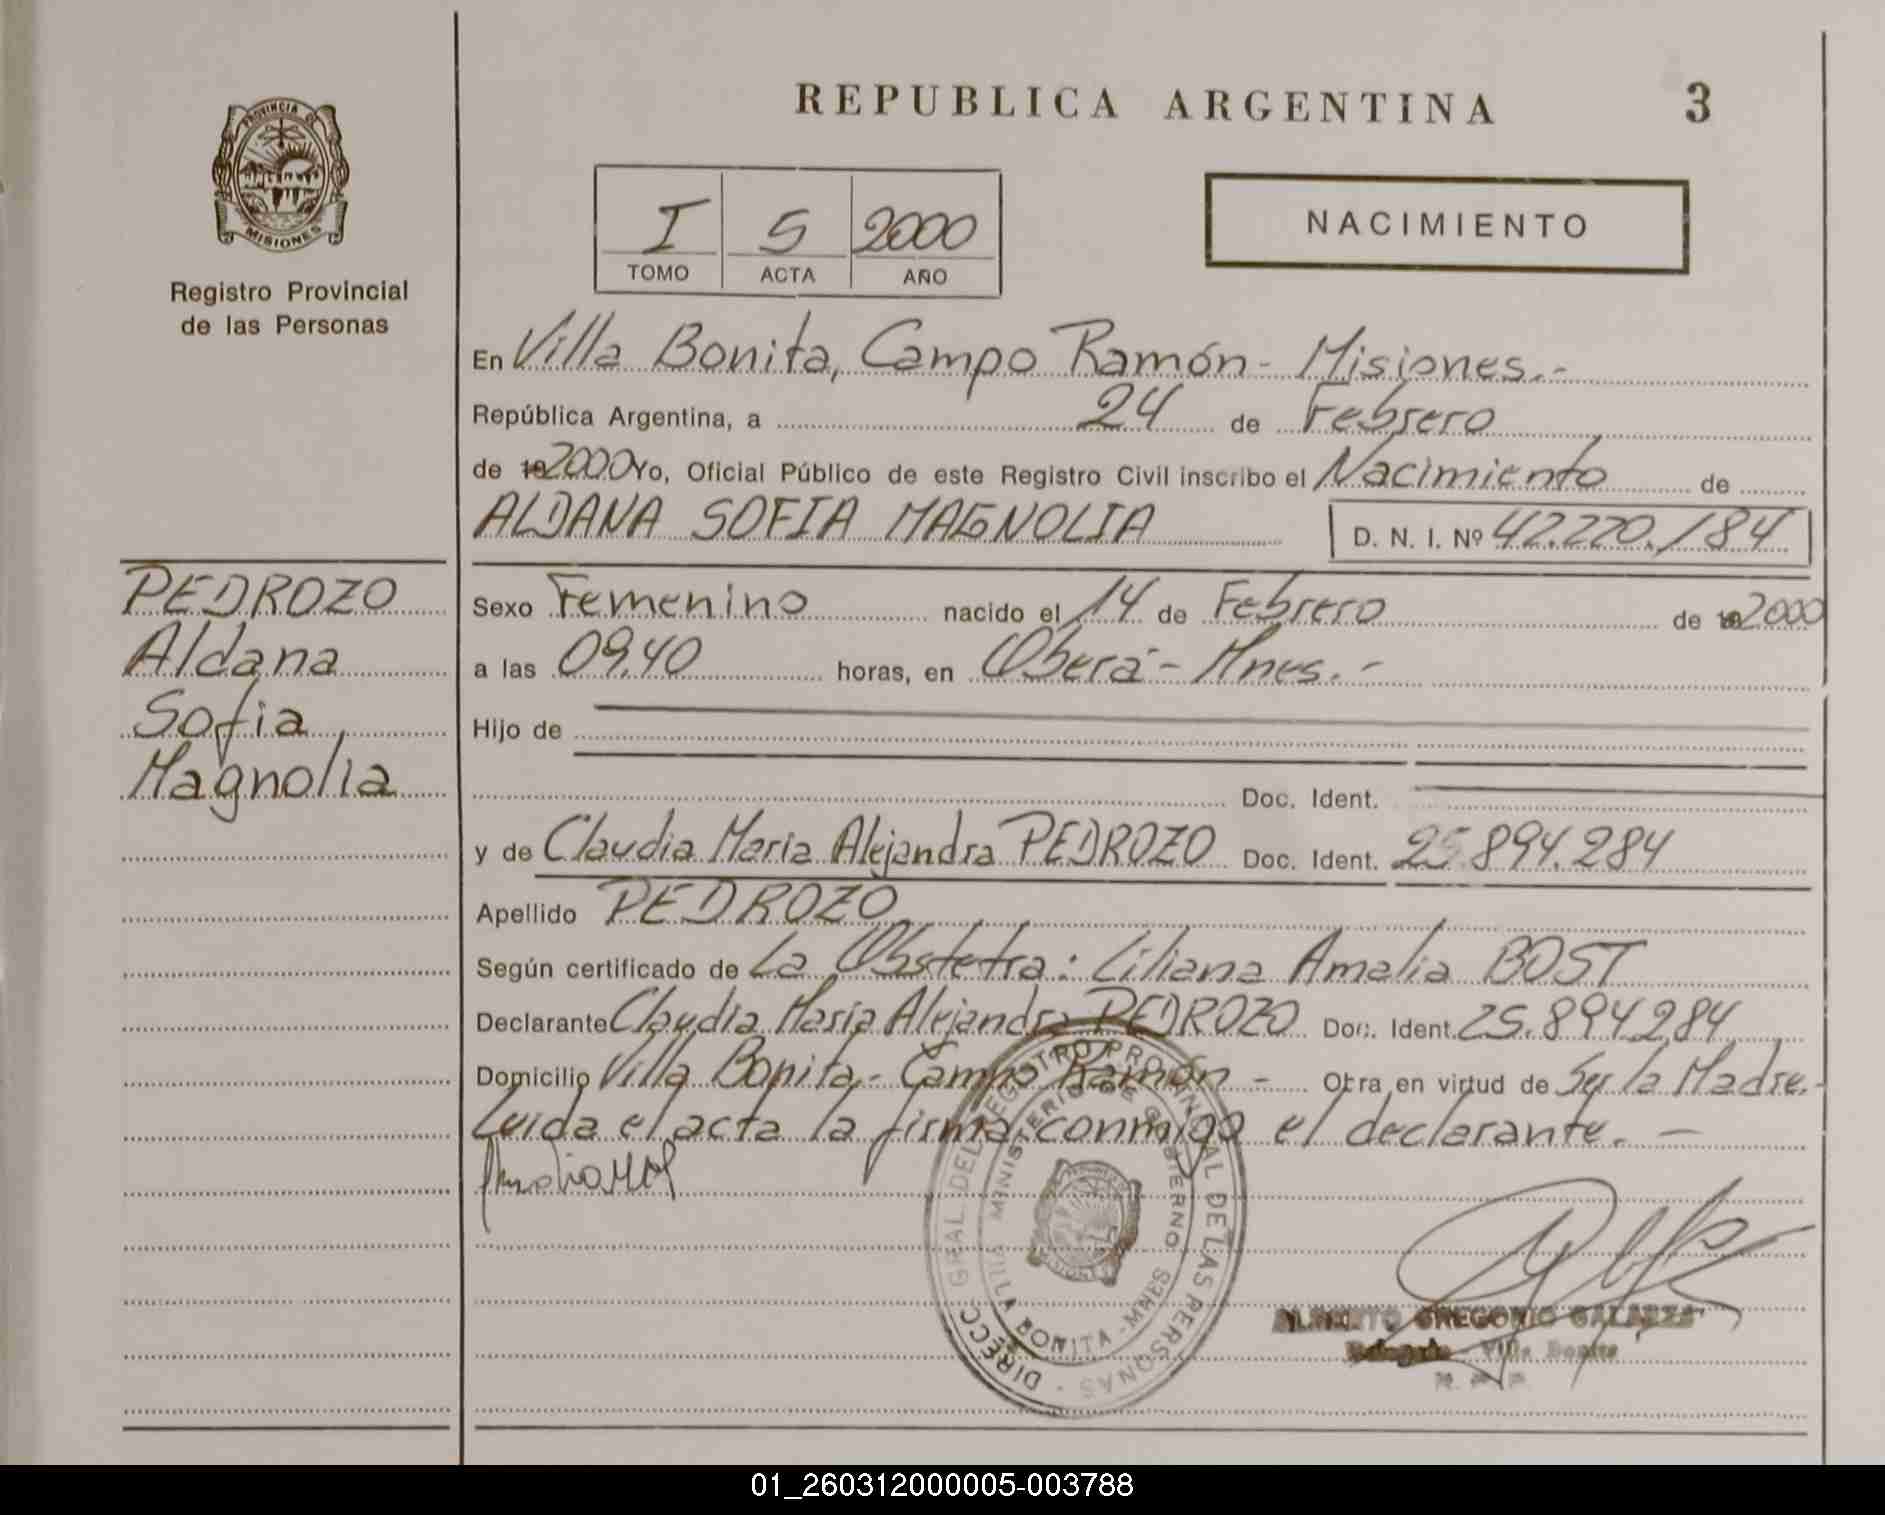 REPUBLICA ARGENTINA 3
PROVINCIA DE
MISIONES
Registro Provincial
de las Personas
I 5 2000
TOMO ACTA AÑO
NACIMIENTO
En Villa Bonita, Campo Ramón - Misiones.-
República Argentina, a 24 de Febrero
de 19 2000 Yo, Oficial Público de este Registro Civil inscribo el Nacimiento de
ALDANA SOFIA MAGNOLIA D. N. I. Nº 42.220.184
PEDROZO
Aldana
Sofia
Magnolia
Sexo Femenino nacido el 14 de Febrero de 19 2000
a las 09.40 horas, en Oberá - Mnes.-
Hijo de
Doc. Ident.
y de Claudia Maria Alejandra PEDROZO Doc. Ident. 25.894.284
Apellido PEDROZO
Según certificado de La Obstetra: Liliana Amalia BOST
Declarante Claudia Maria Alejandra PEDROZO Doc. Ident. 25.894.284
Domicilio Villa Bonita - Campo Ramón - Obra en virtud de Ser la Madre.-
Leida el acta la firma conmigo el declarante. -
DIRECC. GRAL DEL REGISTRO PROVINCIAL DE LAS PERSONAS
MINISTERIO DE GOBIERNO
VILLA BONITA - MNES
MISIONES
ALBERTO GREGORIO GALARZA
Delegado - Villa Bonita
01_260312000005-003788